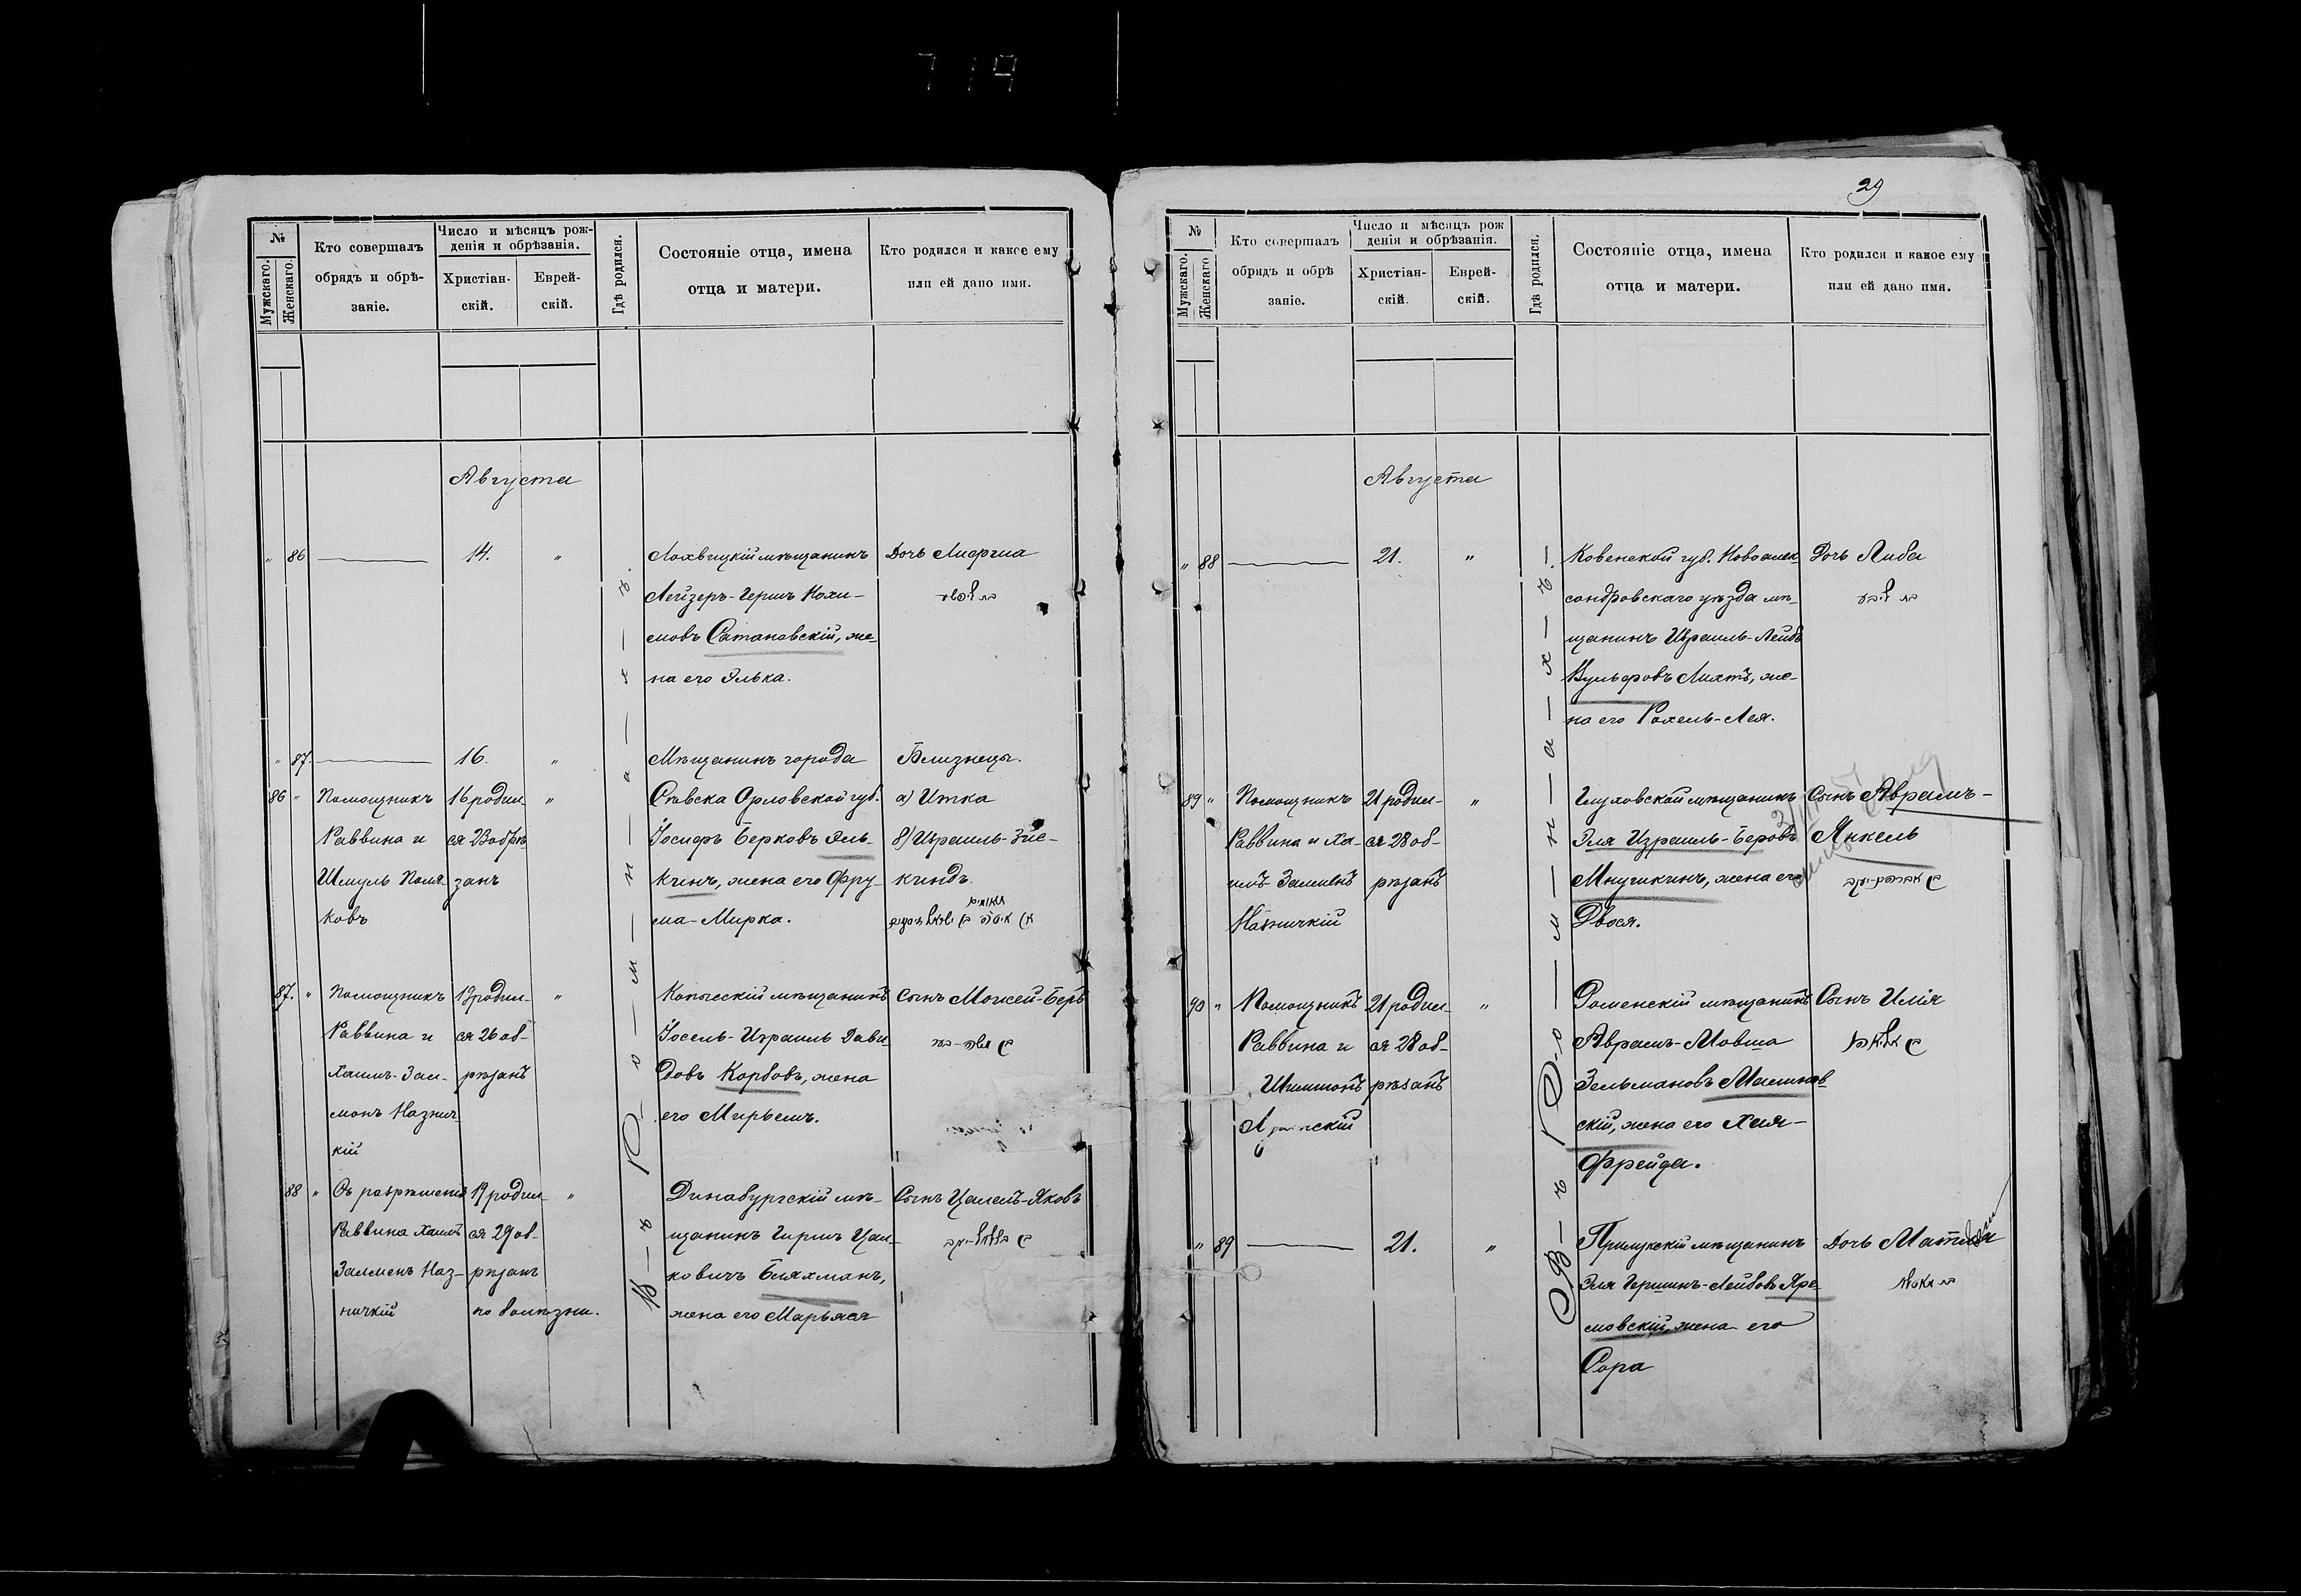 719
№
Мужскаго.
Женскаго.
Кто совершалъ
обрядъ и обрѣ-
заніе.
Число и мѣсяцъ рож-
денія и обрѣзанія.
Христіан-
скій.
Еврей-
скій.
Гдѣ родился.
Состояніе отца, имена
отца и матери.
Кто родился и какое ему
или ей дано имя.
Августа
В-ъ Р-о-м-н-а-х-ъ.
" 86 14. "
Лохвицкій мѣщанинъ
Лейзеръ-Гершъ Нохи-
мовъ Сатановскій, же-
на его Элька.
Дочь
" 87. 16. "
Мѣщанинъ города
Сѣвска Орловской губ.
Іосифъ Берковъ Эль-
кинъ, жена его Фру-
ма-Мирка.
Близнецы.
а) Итка
б) Израиль-Зис-
киндъ.
86 "
Помощникъ
Раввина и
Шмуль Поля-
ковъ
16 родил-
ся 23 обрѣ-
занъ
"
87. "
Помощникъ
Раввина и
Хаимъ-Зал-
монъ Назнич
кій
19 родил-
ся 26 об-
рѣзанъ
"
Копысскій мѣщанинъ
Іосель-Израиль Дави-
довъ Корбовъ, жена
его Мирьемъ.
Сынъ Моисей-Беръ
משה-בר
88 "
Съ разрѣшенія
Раввина Хаимъ
Залменъ Наз-
ничкій
19 родил-
ся 29 об-
рѣзанъ
по болѣзни.
"
Динабургскій мѣ-
щанинъ Гиршъ Цал-
ковичъ Бляхманъ,
жена его Марьяся
Сынъ Цалелъ-Яковъ
29
№
Мужскаго.
Женскаго
Кто совершалъ
обрядъ и обрѣ
заніе.
Число и мѣсяцъ рож
денія и обрѣзанія.
Христіан-
скій.
Еврей-
скій.
Гдѣ родился.
Состояніе отца, имена
отца и матери.
Кто родился и какое ему
или ей дано имя.
Августа
В-ъ Р-о-м-н-а-х-ъ.
" 88 21. "
Ковенской губ. Новоалек-
сандровскаго уѣзда мѣ-
щанинъ Израиль-Лейбъ
Вульфовъ Лихтъ, же-
на его Рохель-Лея.
Дочь Либа
בת ליבה
89 "
Помощникъ
Раввина и Ха-
имъ Залменъ
Назничкій
21 родил-
ся 28 об-
рѣзанъ
"
Глуховской мѣщанинъ
Эля Израиль-Беровъ
Мнушкинъ, жена его
Двося.
Сынъ Аврамъ-
Янкель
90 "
Помощникъ
Раввина и
Шлиомъ
21 родил-
ся 28 об-
рѣзанъ
"
Роменскій мѣщанинъ
Аврамъ-Мовша
Зельмановъ Малинов
скій, жена его Хая-
Фрейда.
Сынъ Илія
" 89 21. "
Прилукскій мѣщанинъ
Эля Гершинъ-Лейбовъ Яре-
мовскій, жена его
Сора
Дочь